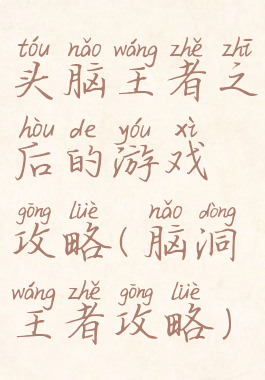 tóu nǎo wáng zhě zhī
头脑王者之
hòu de yóu xì
后的游戏
gōng lüè nǎo dòng
攻略(脑洞
wáng zhě gōng lüè
王者攻略)